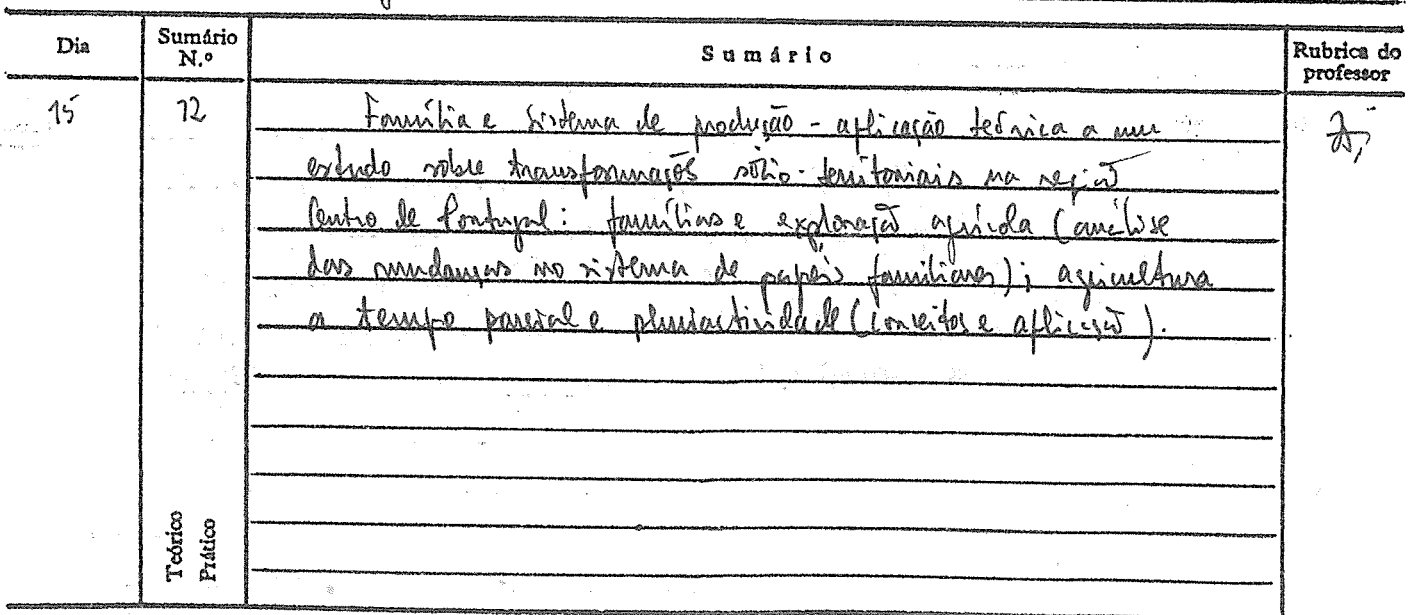 Dia Sumário N.º Sumário Rubrica do professor
15 12 Família e sistema de produção - aplicação a um
estudo sobre transformações sócio-territoriais na região
Centro de Portugal: famílias e exploração agrícola (análise
das mudanças no sistema de papéis familiares); agricultura
a tempo parcial e pluriactividade (conceitos e aplicação).
Teórico
Prático